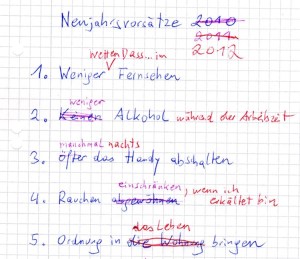 Neujahrsvorsätze 2010
2011
2012
wetten Dass... im
1. Weniger Fernsehen
weniger
2. Keinen Alkohol während der Arbeitszeit
manchmal nachts
3. öfter das Handy abschalten
einschränken, wenn ich
4. Rauchen abgewöhnen erkältet bin
das Leben
5. Ordnung in die Wohnung bringen